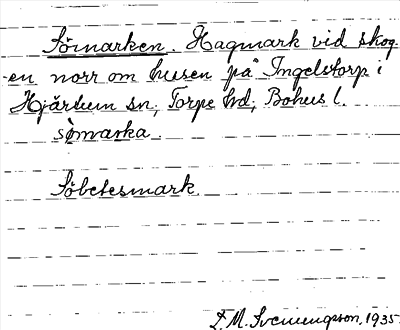 Sömarken. Hagmark vid skog-
en norr om husen på Ingelstorp i
Hjärtum sn; Torpe hd; Bohus l.
sömarka.
Söbetesmark
F. M. Svenungsson, 1935